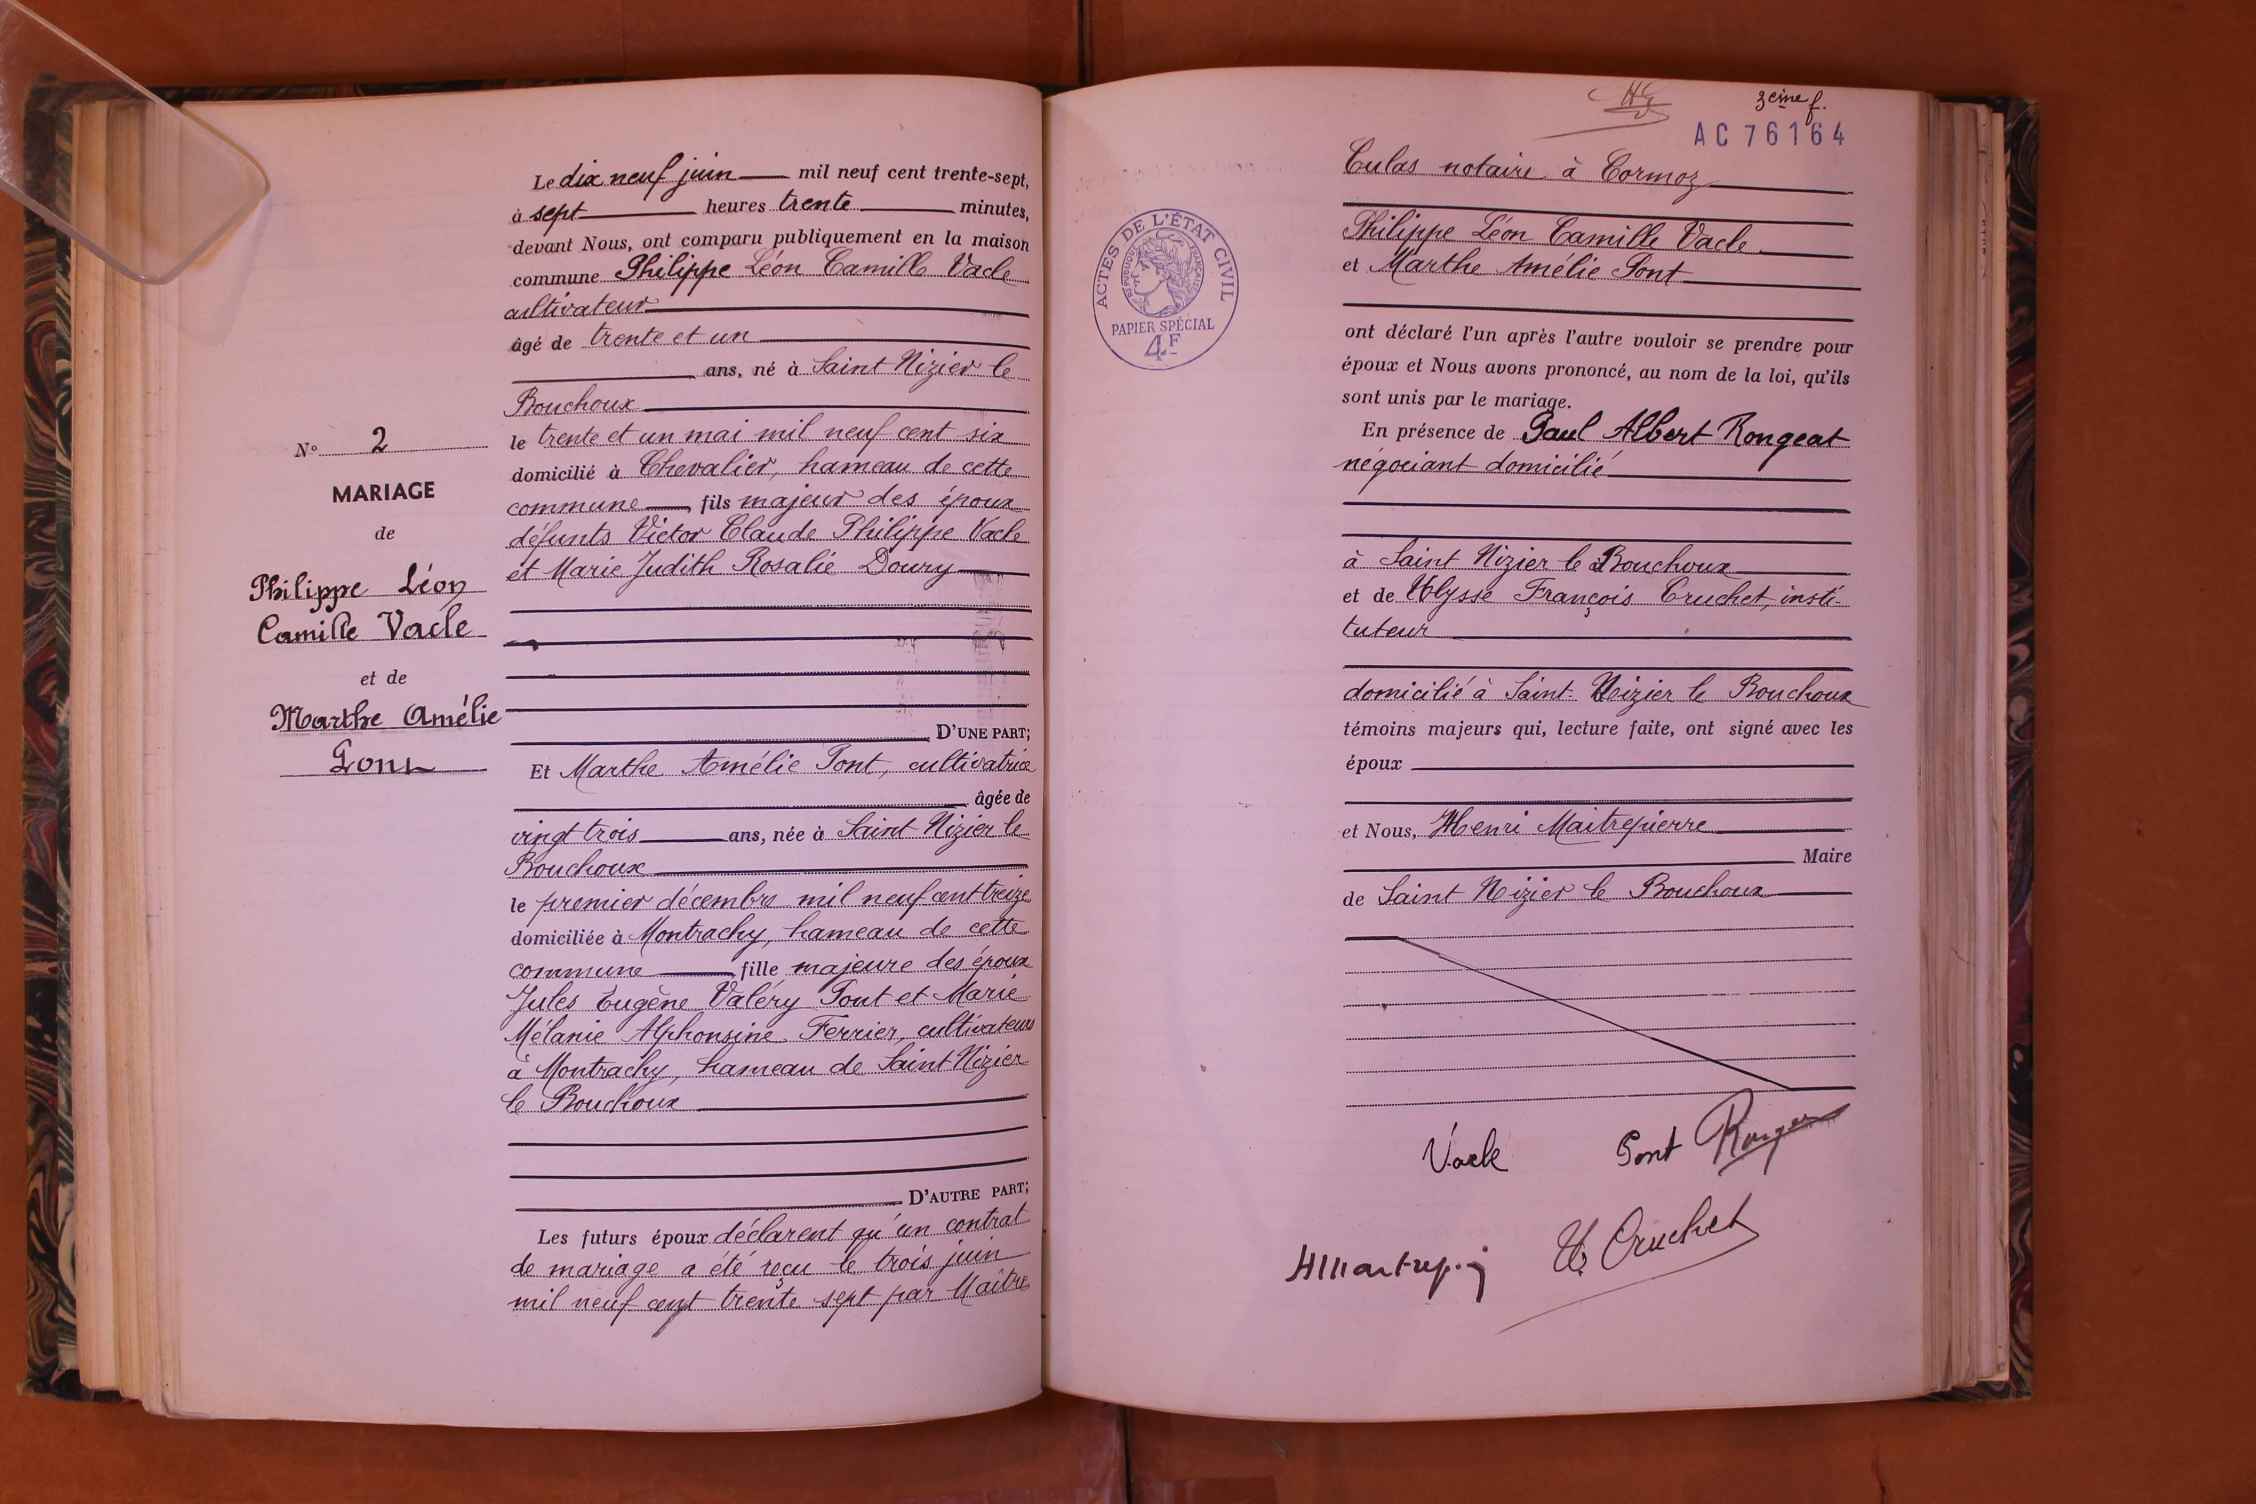 Le dix neuf juin mil neuf cent trente-sept,
à sept heures trente minutes,
devant Nous, ont comparu publiquement en la maison
commune Philippe Léon Camille Vacle
cultivateur
âgé de trente et un
ans, né à Saint Nizier le
Bouchoux
le trente et un mai mil neuf cent six
domicilié à Chevalier, hameau de cette
commune fils majeur des époux
défunts Victor Claude Philippe Vacle
et Marie Judith Rosalie Doury
D'UNE PART;
N° 2
MARIAGE
de
Philippe Léon
Camille Vacle
et de
Marthe Amélie
Pont
Et Marthe Amélie Pont, cultivatrice
âgée de
vingt trois ans, née à Saint Nizier le
Bouchoux
le premier décembre mil neuf cent treize
domiciliée à Montrachy, hameau de cette
commune fille majeure des époux
Jules Eugène Valéry Pont et Marie
Mélanie Alphonsine Ferrier, cultivateurs
à Montrachy, hameau de Saint Nizier
le Bouchoux
D'AUTRE PART;
Les futurs époux déclarent qu'un contrat
de mariage a été reçu le trois juin
mil neuf cent trente sept par Maître
3eme f.
AC 76164
ACTES DE L'ÉTAT CIVIL
RÉPUBLIQUE FRANÇAISE
PAPIER SPÉCIAL
4F
Culas notaire à Cormoz
Philippe Léon Camille Vacle
et Marthe Amélie Pont
ont déclaré l'un après l'autre vouloir se prendre pour
époux et Nous avons prononcé, au nom de la loi, qu'ils
sont unis par le mariage.
En présence de Paul Albert Rongeat
négociant domicilié
à Saint Nizier le Bouchoux
et de Ulysse François Cruchet, insti-
tuteur
domicilié à Saint-Nizier le Bouchoux
témoins majeurs qui, lecture faite, ont signé avec les
époux
et Nous, Henri Maitrepierre
Maire
de Saint Nizier le Bouchoux
Vacle Pont Rongeat
U. Cruchet